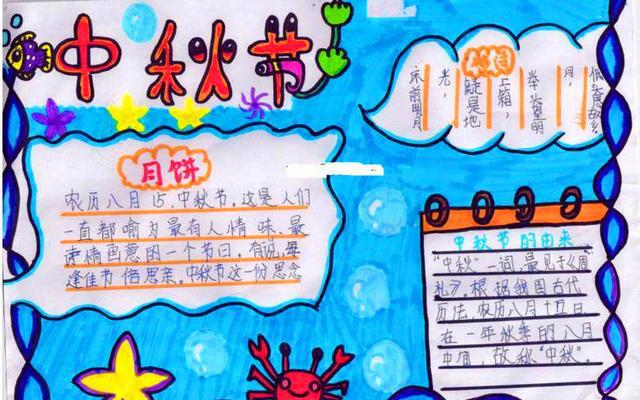 中秋节
月饼
农历八月15,中秋节。这是人们
一直都喻为最有人情味、最
诗情画意的一个节日。有说,每
逢佳节倍思亲。中秋节这一份思念
床前明月
光,
疑是地
上箱,
举头萌
月,
低头思故乡
中秋节的由来
"中秋"一词,最见于《周
礼》。根据我国古代
历法,农历八月十五日,
在一年秋季的八月
中间,故称"中秋"。